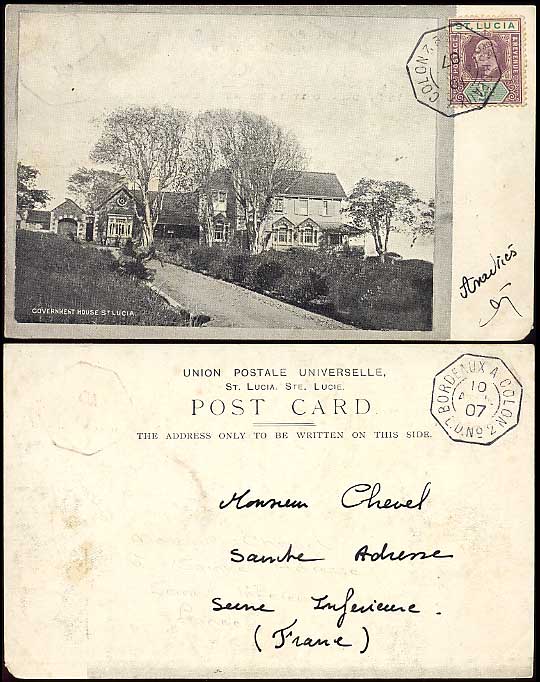 ST. LUCIA
POSTAGE
& REVENUE
COLON
07
GOVERNMENT HOUSE ST LUCIA.
Amitiés
UNION POSTALE UNIVERSELLE,
ST. LUCIA. STE. LUCIE.
POST CARD.
THE ADDRESS ONLY TO BE WRITTEN ON THIS SIDE.
BORDEAUX A COLON
10
07
L.D.No 2
Monsieur Chevel
Sainte Adresse
Seine Inferieure.
(France)